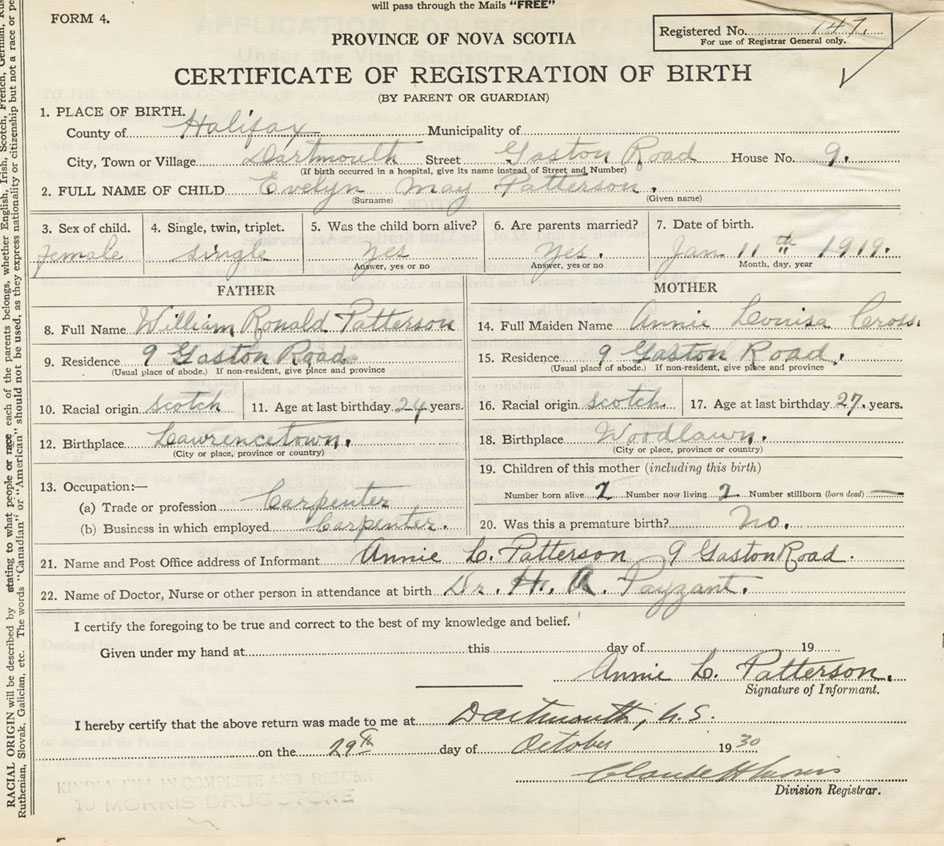 will pass through the Mails "FREE"
FORM 4.
Registered No. 147.
For use of Registrar General only.
PROVINCE OF NOVA SCOTIA
CERTIFICATE OF REGISTRATION OF BIRTH
(BY PARENT OR GUARDIAN)
1. PLACE OF BIRTH.
County of Halifax Municipality of
City, Town or Village Dartmouth Street Gaston Road House No. 9.
(If birth occurred in a hospital, give its name instead of Street and Number)
2. FULL NAME OF CHILD Evelyn May Patterson.
(Surname) (Given name)
3. Sex of child. 4. Single, twin, triplet. 5. Was the child born alive? 6. Are parents married? 7. Date of birth.
female single Yes Yes. Jan 11th 1919.
Answer, yes or no Answer, yes or no Month, day, year
FATHER MOTHER
8. Full Name William Ronald Patterson 14. Full Maiden Name Annie Louisa Cross.
9. Residence 9 Gaston Road 15. Residence 9 Gaston Road.
(Usual place of abode.) If non-resident, give place and province (Usual place of abode.) If non-resident, give place and province
10. Racial origin scotch 11. Age at last birthday 24 years. 16. Racial origin scotch. 17. Age at last birthday 27. years.
12. Birthplace Lawrencetown. 18. Birthplace Woodlawn.
(City or place, province or country) (City or place, province or country)
13. Occupation:—
(a) Trade or profession Carpenter
(b) Business in which employed Carpenter.
19. Children of this mother (including this birth)
Number born alive 2 Number now living 2. Number stillborn (born dead) —
20. Was this a premature birth? No.
21. Name and Post Office address of Informant Annie L. Patterson 9 Gaston Road.
22. Name of Doctor, Nurse or other person in attendance at birth Dr. H. A. Payzant.
I certify the foregoing to be true and correct to the best of my knowledge and belief.
Given under my hand at this day of 19
Annie L. Patterson.
Signature of Informant.
I hereby certify that the above return was made to me at Dartmouth, N.S.
on the 29th day of October 1930
Division Registrar.
KINDLY FILL IN COMPLETE AND RETURN
TO MORRIS DRUG STORE
RACIAL ORIGIN will be described by stating to what people or race each of the parents belongs, whether English, Irish, Scotch, French, German,
Ruthenian, Slovak, Galician, etc. The words "Canadian" or "American" should not be used, as they express nationality or citizenship but not a race or